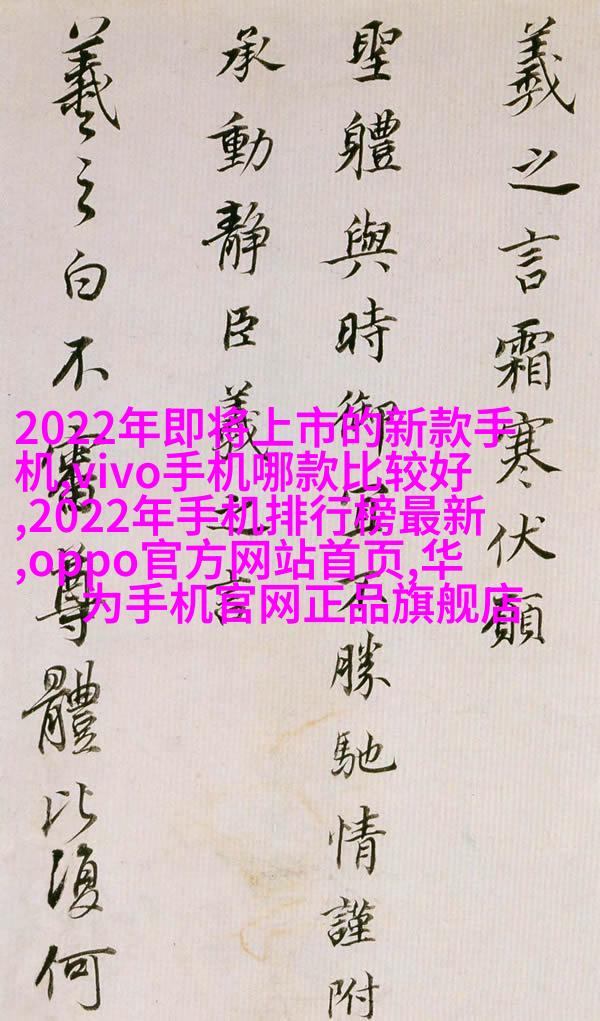 羲之言霜寒伏願
聖體與時御宜不勝馳情謹附
承動靜臣羲之言
羲之白不審尊體比復何
2022年即将上市的新款手
机,vivo手机哪款比较好
,2022年手机排行榜最新
,oppo官方网站首页,华
为手机官网正品旗舰店